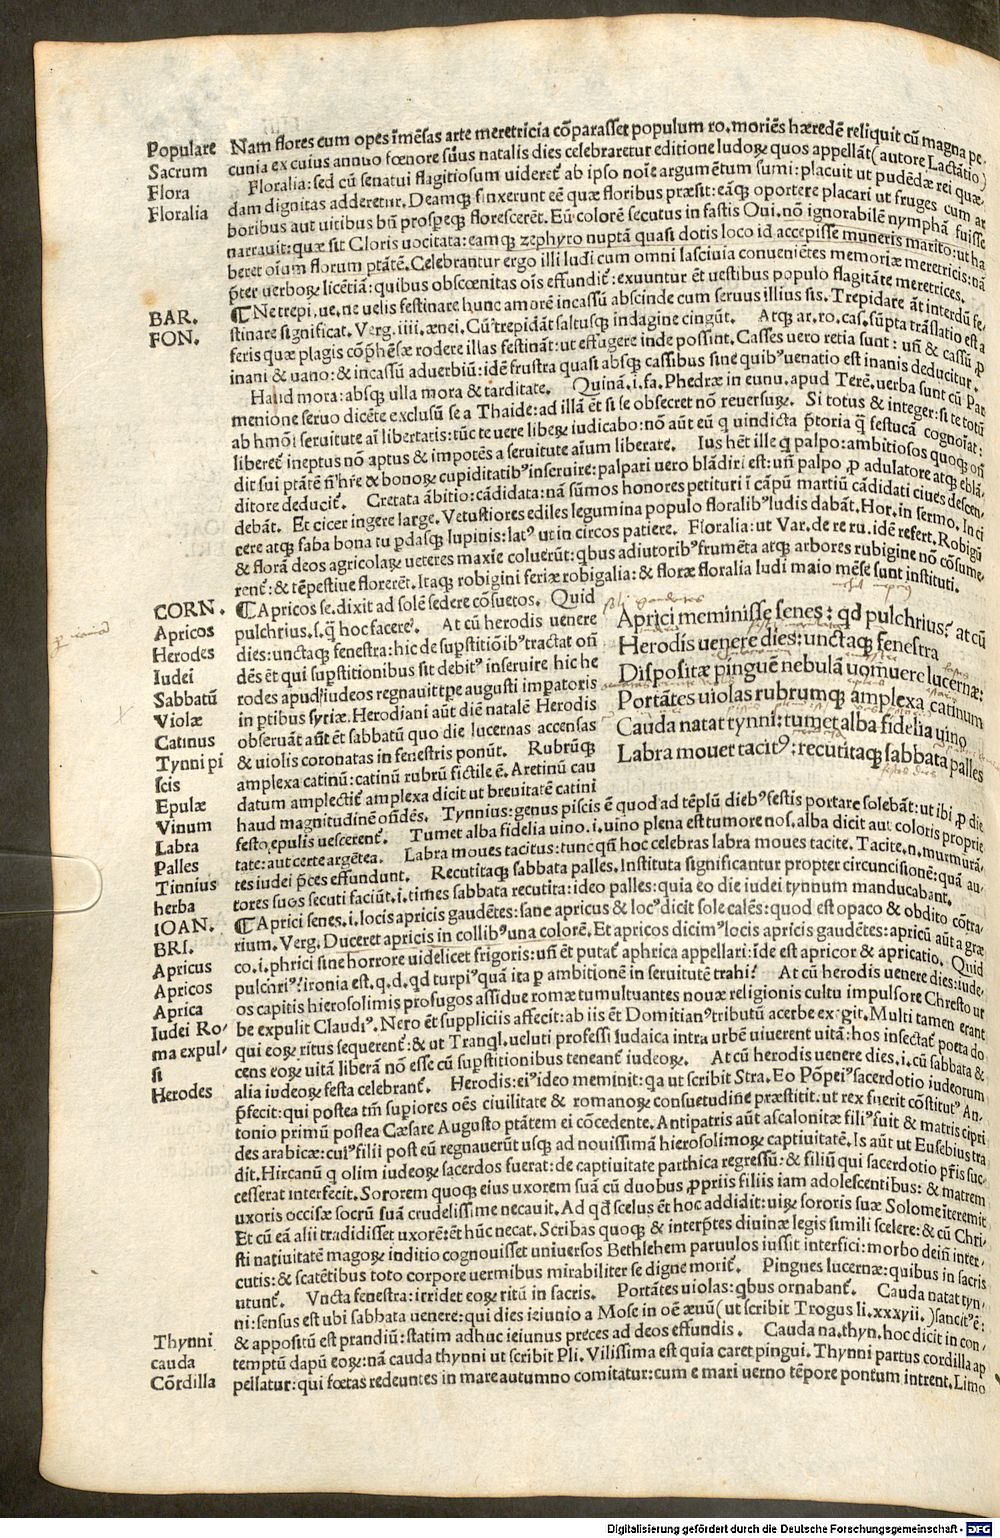 Populare
Sacrum
Flora
Floralia
Nam flores cum opes īmēsas arte meretricia cōparasset populum ro. moriēs hæredē reliquit cū magna pe,
cunia ex cuius annuo fœnore suus natalis dies celebraretur editione ludoꝝ quos appellāt (autore Lactātio)
Floralia: sed cū senatui flagitiosum uideret᷑ ab ipso noīe argumētum sumi: placuit ut pudēdæ rei quæ,
dam dignitas adderetur. Deamqꝫ finxerunt eē quæ floribus præsit: eāqꝫ oportere placari ut fruges cum ar
boribus aut uitibus bn̄ prospeqꝫ florescerēt. Eū colorē secutus in fastis Oui. nō ignorabilē nymphā fuisse
narrauit: quæ sit Cloris uocitata: eamqꝫ zephyro nuptā quasi dotis loco id accepisse muneris marito: ut ha
beret oīum florum ptātē. Celebrantur ergo illi ludi cum omni lasciuia conueniētes memoriæ meretricis: nā
p̄ter uerboꝝ licētiā: quibus obscœnitas oīs effundit᷑: exuuntur ēt uestibus populo flagitāte meretrices.
BAR.
FON.
¶ Ne trepi. ue. ne uelis festinare hunc amorē incassū abscinde cum seruus illius sis. Trepidare āt interdū fe,
stinare significat. Verg. iiii. ænei. Cū trepidāt saltusqꝫ indagine cingūt. Atqꝫ ar. ro. cas. sūpta trāslatio est a
feris quæ plagis cōp̄hēsæ rodere illas festināt: ut effugere inde possint. Casses uero retia sunt: un̄ & cassū ꝓ
inani & uano: & incassū aduerbiū: idē frustra quasi absqꝫ cassibus sine quibꝰ uenatio est inanis deducitur.
Haud mora: absqꝫ ulla mora & tarditate. Quinā. i. fa. Phedræ in eunu. apud Terē. uerba sunt cū Par
menione seruo dicēte exclusū se a Thaide: ad illā ēt si se obsecret nō reuersuꝝ. Si totus & integer: si te totū
ab hmōi seruitute aī libertatis: tūc te uere liberꝝ iudicabo: nō aūt eū q uindicta p̄toria q̄ festucā cognoīat:
liberet᷑ ineptus nō aptus & impotēs a seruitute aīum liberare. Ius hēt ille q̄ palpo: ambitiosos quoqꝫ on̄
dit sui ptātē n̄ hr̄e & bonoꝝ cupiditatibꝰ inseruire: palpari uero blādiri est: un̄ palpo ꝓ adulatore atqꝫ eblā,
ditore deducit᷑. Cretata ābitio: cādidata: nā sūmos honores petituri ī cāpū martiū cādidati ciues descen,
debāt. Et cicer ingere large. Vetustiores ediles legumina populo floralibꝰ ludis dabāt. Hor. in sermo. In ci
cere atqꝫ faba bona tu ꝑdasqꝫ lupinis: latꝰ ut in circos patiere. Floralia: ut Var. de re ru. idē refert. Robigū
& florā deos agricolaꝝ ueteres maxīe coluerūt: qbus adiutoribꝰ frumēta atqꝫ arbores rubigine nō cōsume,
rent᷑: & tēpestiue florerēt. Itaqꝫ robigini feriæ robigalia: & floræ floralia ludi maio mēse sunt instituti.
CORN.
Apricos
Herodes
Iudei
Sabbatū
Violæ
Catinus
Tynni pi
scis
Epulæ
Vinum
Labra
Palles
Tinnius
herba
¶ Apricos se. dixit ad solē sedere cōsuetos. Quid
pulchrius. s. q̄ hoc facere? At cū herodis uenere
dies: unctaqꝫ fenestra: hic de supstitiōibꝰ tractat on̄
dēs ēt qui supstitionibus sit debitꝰ inseruire hic he
rodes apud iudeos regnauit tpe augusti impatoris
in ptibus syriæ. Herodiani aūt diē natalē Herodis
obseruāt aūt ēt sabbatū quo die lucernas accensas
& uiolis coronatas in fenestris ponūt. Rubrūqꝫ
amplexa catinū: catinū rubrū fictile ē. Aretinū cau
datum amplectit᷑ amplexa dicit ut breuitatē catini
Aprici meminisse senes: qd pulchrius? at cū
Herodis uenere dies: unctaqꝫ fenestra
Dispositæ pinguē nebulā uomuere lucernæ:
Portātes uiolas rubrumqꝫ amplexa catinum
Cauda natat tynni: tumet alba fidelia uino,
Labra mouet tacitꝰ: recutitaqꝫ sabbata palles
haud magnitudinē on̄dēs. Tynnius: genus piscis ē quod ad tēplū diebꝰ festis portare solebāt: ut ibi ꝓ die
festo epulis uescerent᷑. Tumet alba fidelia uino. i. uino plena est tumore nos. alba dicit aut coloris proprie
tate: aut certe argētea. Labra moues tacitus: tunc qn̄ hoc celebras labra moues tacite. Tacite. n. murmurā,
tes iudei p̄ces effundunt. Recutitaqꝫ sabbata palles. Instituta significantur propter circuncisionē: quā au,
tores suos secuti faciūt. i. times sabbata recutita: ideo palles: quia eo die iudei tynnum manducabant.
IOAN.
BRI.
Apricus
Apricos
Aprica
Iudei Ro,
ma expul,
si
Herodes
¶ Aprici senes. i. locis apricis gaudētes: sane apricus & locꝰ dicit sole calēs: quod est opaco & obdito cōtra,
rium. Verg. Duceret apricis in collibꝰ una colorē. Et apricos dicimꝰ locis apricis gaudētes: apricū aūt a græ
co. i. phrici sine horrore uidelicet frigoris: un̄ ēt putat᷑ aphrica appellari: īde est apricor & apricatio. Quid
pulchriꝰ? ironia est. q. d. qd turpiꝰ quā ita ꝑ ambitionē in seruitutē trahi? At cū herodis uenere dies: iude,
os capitis hierosolimis profugos assidue romæ tumultuantes nouæ religionis cultu impulsore Chresto ur
be expulit Claudiꝰ. Nero ēt suppliciis affecit: ab iis ēt Domitianꝰ tributū acerbe exegit. Multi tamen erant
qui eoꝝ ritus sequerent᷑: & ut Tranql. ueluti professi Iudaica intra urbē uiuerent uitā: hos insectat᷑ poeta do
cens eoꝝ uitā liberā nō esse cū supstitionibus teneant᷑ iudeoꝝ. At cū herodis uenere dies. i. cū sabbata &
alia iudeoꝝ festa celebrant᷑. Herodis: eiꝰ ideo meminit: qa ut scribit Stra. Eo Pōpeiꝰ sacerdotio iudeorum
p̄fecit: qui postea tm̄ supiores oēs ciuilitate & romanoꝝ consuetudine præstitit: ut rex fuerit cōstitutꝰ An,
tonio primū postea Cæsare Augusto ptātem ei cōcedente. Antipatris aūt ascalonitæ filiꝰ fuit & matris cipri
des arabicæ: cuiꝰ filii post eū regnauerūt usqꝫ ad nouissimā hierosolimoꝝ captiuitatē. Is aūt ut Eusebius tra
dit. Hircanū q olim iudeoꝝ sacerdos fuerat: de captiuitate parthica regressū: & filiū qui sacerdotio pr̄is suc
cesserat interfecit. Sororem quoqꝫ eius uxorem suā cū duobus ꝓpriis filiis iam adolescentibus: & matrem
uxoris occisæ socrū suā crudelissime necauit. Ad qd scelus ēt hoc addidit: uiꝝ sororis suæ Solome īteremit
Et cū eā alii tradidisset uxorē: ēt hūc necat. Scribas quoqꝫ & interp̄tes diuinæ legis simili scelere: & cū Chri,
sti natiuitatē magoꝝ inditio cognouisset uniuersos Bethlehem paruulos iussit interfici: morbo dein̄ inter,
cutis: & scatētibus toto corpore uermibus mirabiliter se digne morit᷑. Pingues lucernæ: quibus in sacris
utunt᷑. Vncta fenestra: irridet eoꝝ ritū in sacris. Portātes uiolas: qbus ornabant᷑. Cauda natat tyn,
ni: sensus est ubi sabbata uenere: qui dies ieiunio a Mose in oē æuū (ut scribit Trogus li. xxxvii.) sancitꝰ ē:
Thynni
cauda
Cōrdilla
& appositū est prandiū: statim adhuc ieiunus preces ad deos effundis. Cauda na. thyn. hoc dicit in con,
temptū dapū eoꝝ: nā cauda thynni ut scribit Pli. Vilissima est quia caret pingui. Thynni partus cordilla ap
pellatur: qui fœtas redeuntes in mare autumno comitatur: cum e mari uerno tēpore pontum intrent. Limo
Digitalisierung gefördert durch die Deutsche Forschungsgemeinschaft - DFG